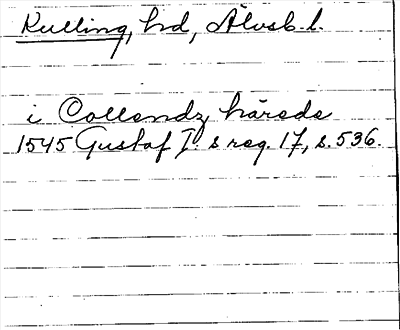 Kulling, hd, Älvsb. l.
i Collendz härede
1545 Gustaf I. s reg. 17, s. 536.